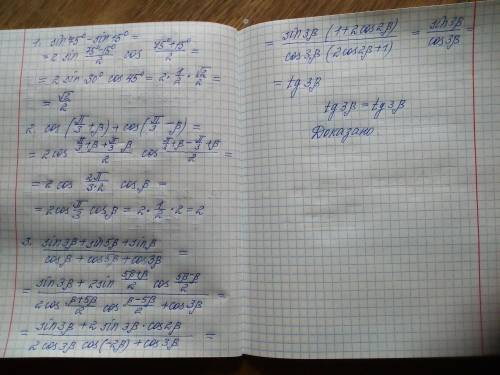 1. sin 75° - sin 15° =
= 2 sin (75°-15°)/2 cos (75°+15°)/2 =
= 2 sin 30° cos 45° = 2 · 1/2 · √2/2 =
= √2/2
2. cos (π/3 + β) + cos (π/3 - β) =
= 2 cos (π/3+β+π/3-β)/2 cos (π/3+β-π/3+β)/2 =
= 2 cos 2π/(3·2) cos β =
= 2 cos π/3 cos β = 2 · 1/2 · 2 = 2
3. (sin 3β + sin 5β + sin β)/(cos β + cos 5β + cos 3β) =
= (sin 3β + 2 sin (5β+β)/2 cos (5β-β)/2)/(2 cos (β+5β)/2 cos (β-5β)/2 + cos 3β) =
= (sin 3β + 2 sin 3β · cos 2β)/(2 cos 3β cos (-2β) + cos 3β) =
= (sin 3β (1 + 2 cos 2β))/(cos 3β (2 cos 2β + 1)) = sin 3β/cos 3β =
= tg 3β
tg 3β = tg 3β
Доказано.